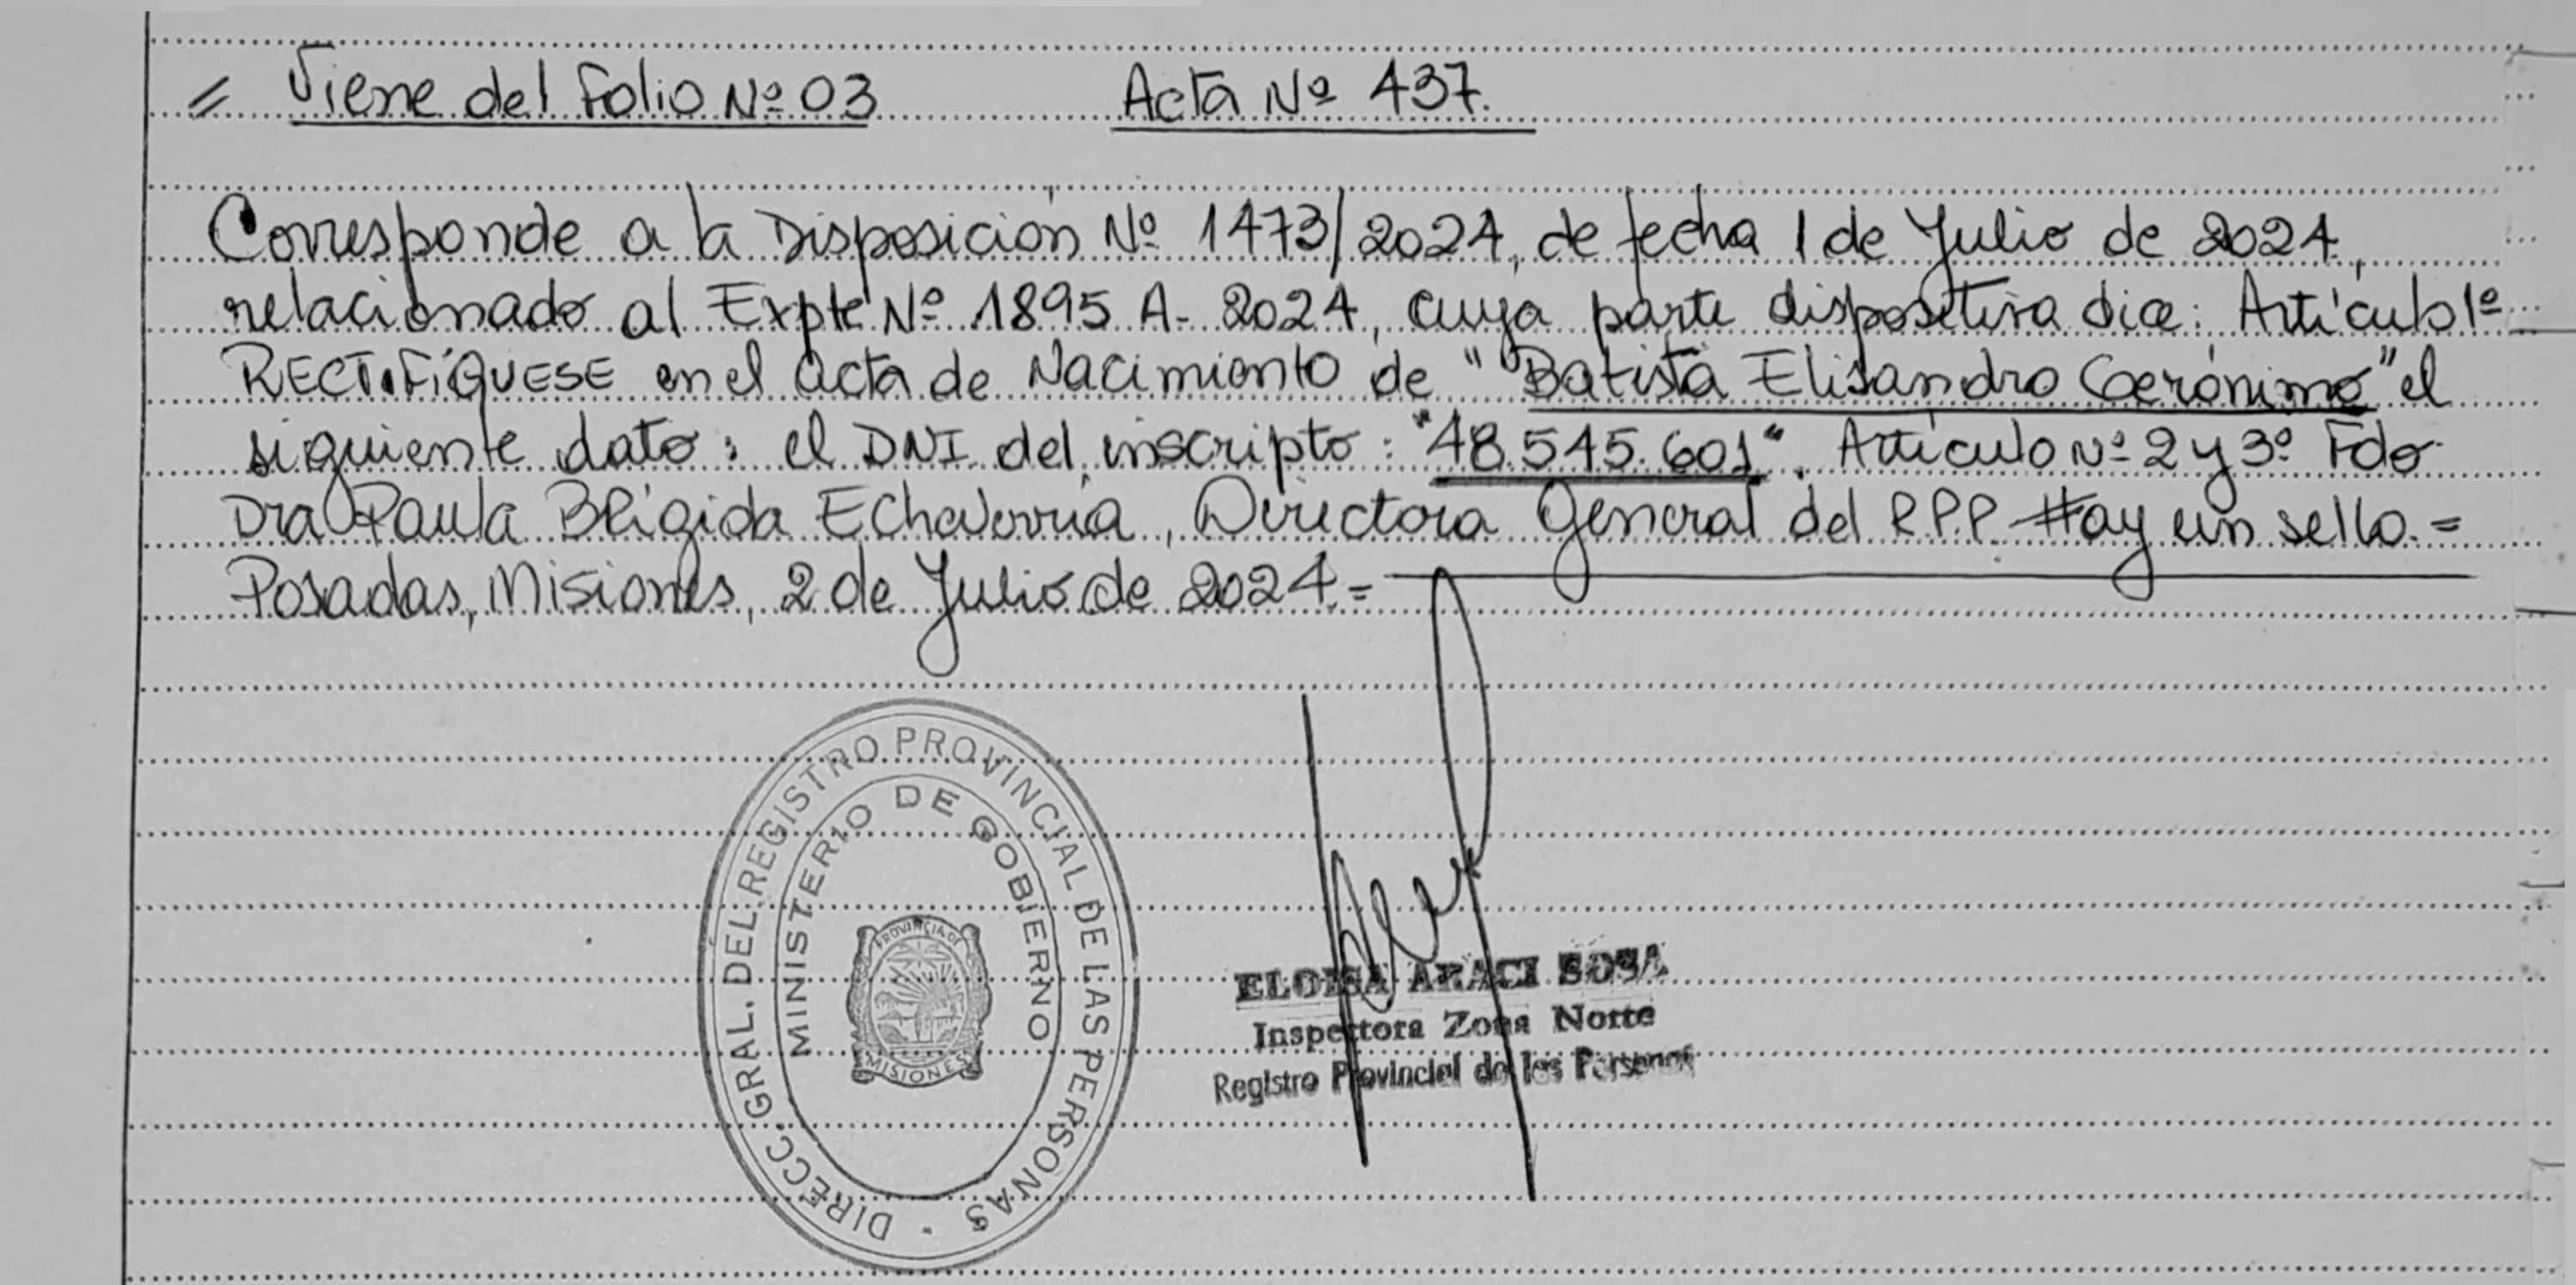 = Viene del Folio Nº 03 Acta Nº 437.
Corresponde a la Disposición Nº 1473/2024, de fecha 1 de Julio de 2024,
relacionado al Expte Nº 1895 A- 2024, cuya parte dispositiva dice: Artículo 1º
RECTIFÍQUESE en el acta de Nacimiento de "Batista Elisandro Gerónimo" el
siguiente dato: el DNI del inscripto: "48.545.601". Artículo Nº 2 y 3º Fdo
Dra Paula Brígida Echeverría, Directora General del R.P.P. Hay un sello.=
Posadas, Misiones, 2 de Julio de 2024.=
DIRECC. GRAL. DEL REGISTRO PROVINCIAL DE LAS PERSONAS
MINISTERIO DE GOBIERNO
PROVINCIA DE
MISIONES
ELOISA ARACI SOSA
Inspectora Zona Norte
Registro Provincial de las Personas